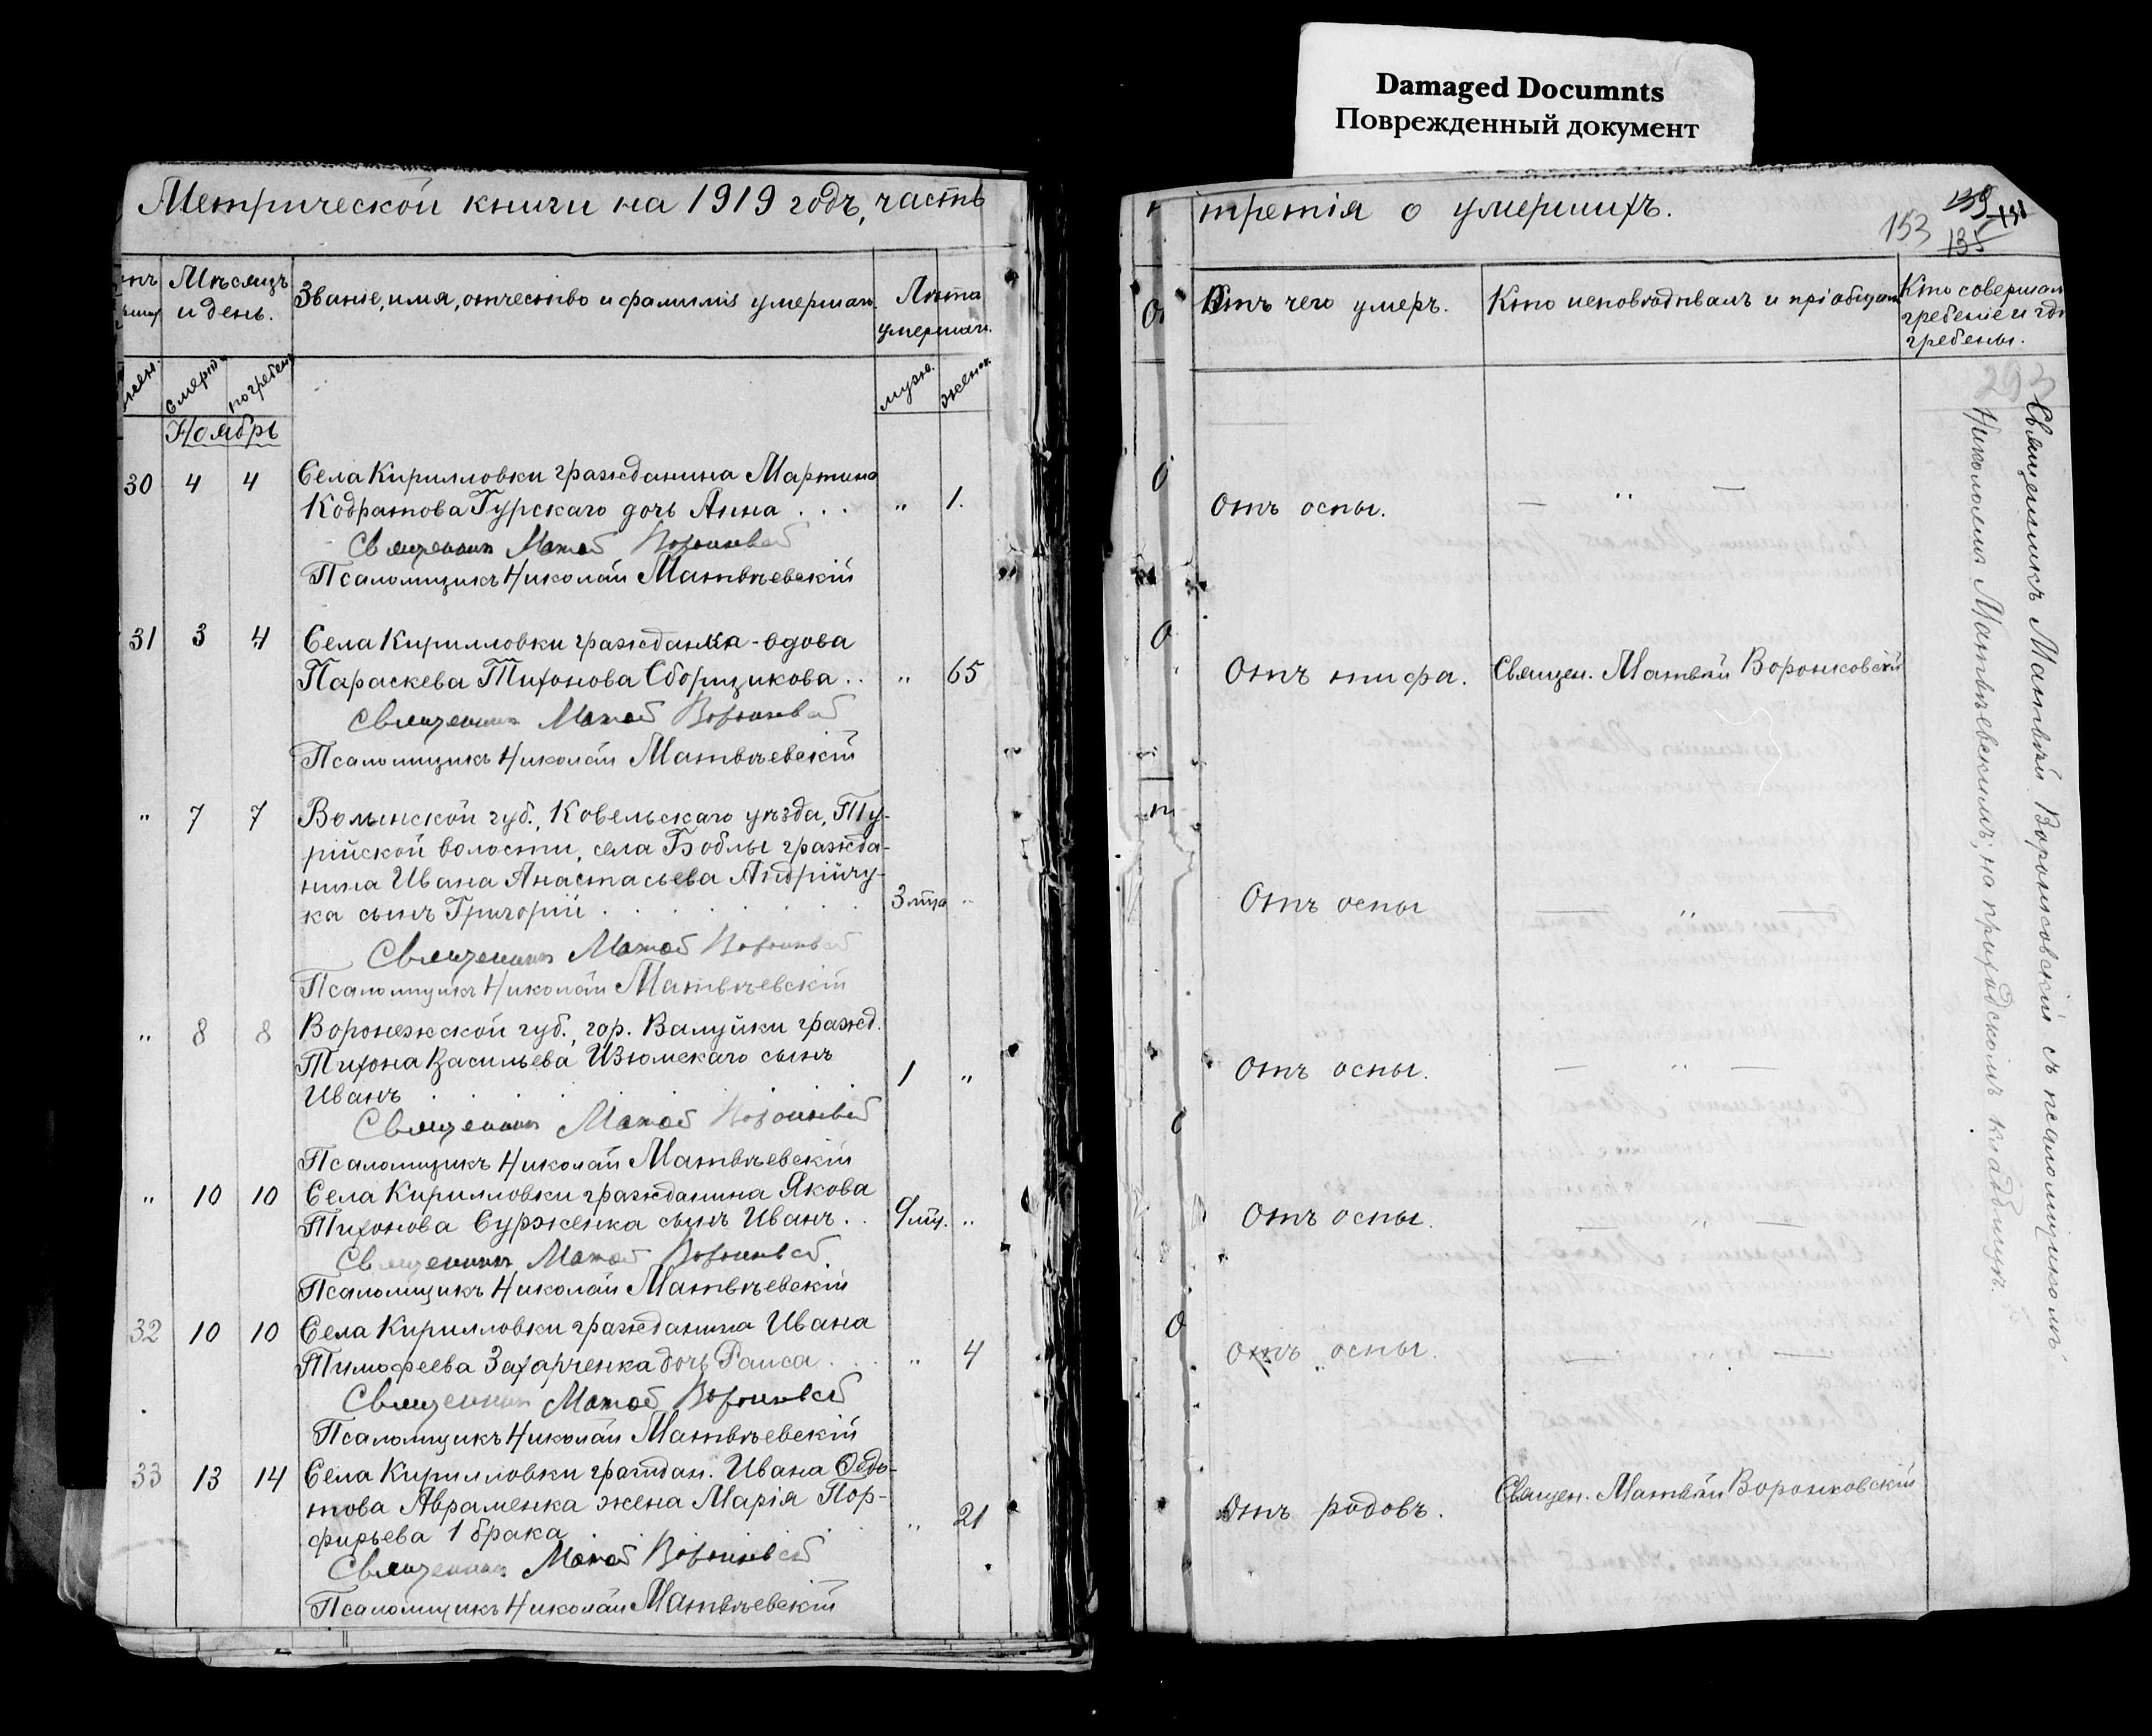 Damaged Documnts
Поврежденный документ
Метрической книги на 1919 годъ, часть
Мѣсяцъ
и день.
Званіе, имя, отчество и фамилія умершаго.
Лѣта
умершаго.
жен.
смерти
погребен.
муж.
женск.
Ноябрь
30 4 4 Села Кирилловки гражданина Мартина
Кодратова Гурскаго дочь Анна . . . " 1.
Священникъ Матвѣй
Псаломщикъ Николай Матвѣевскій
31 3 4 Села Кирилловки гражданка-вдова
Параскева Тихонова Сборщикова . . " 65
Священникъ Матвѣй
Псаломщикъ Николай Матвѣевскій
" 7 7 Волынской губ., Ковельскаго уѣзда, Ту-
рійской волости, села Боблы гражда-
нина Ивана Анастасьева Андрійчу-
ка сынъ Григорій . . . . . 3 мѣс. "
Священникъ Матвѣй
Псаломщикъ Николай Матвѣевскій
" 8 8 Воронежской губ., гор. Валуйки гражд.
Тихона Васильева Изюмскаго сынъ
Иванъ . . . . . 1 "
Священникъ Матвѣй
Псаломщикъ Николай Матвѣевскій
" 10 10 Села Кирилловки гражданина Якова
Тихонова Сурженка сынъ Иванъ . . 9 мѣс. "
Священникъ Матвѣй
Псаломщикъ Николай Матвѣевскій
32 10 10 Села Кирилловки гражданина Ивана
Тимофеева Захарченка дочь Раиса . . . " 4
Священникъ Матвѣй
Псаломщикъ Николай Матвѣевскій
33 13 14 Села Кирилловки граждан. Ивана Федо-
това Авраменка жена Марія Пор-
фирьева 1 брака . . . " 21
Священникъ Матвѣй
Псаломщикъ Николай Матвѣевскій
третія о умершихъ.
153 139 131
135
Отъ чего умеръ.
Кто исповѣдывалъ и пріобщалъ
Кто совершалъ
гребеніе и гдѣ
гребены.
293
Отъ оспы. — " —
Отъ тифа. Священ. Матвѣй Воронковскій
Отъ оспы — " —
Отъ оспы. — " —
Отъ оспы. — " —
Отъ оспы. — " —
Отъ родовъ. Священ. Матвѣй Воронковскій
Священникъ Матвѣй Воронковскій съ псаломщикомъ
Николаемъ Матвѣевскимъ, на приходскомъ кладбищѣ.